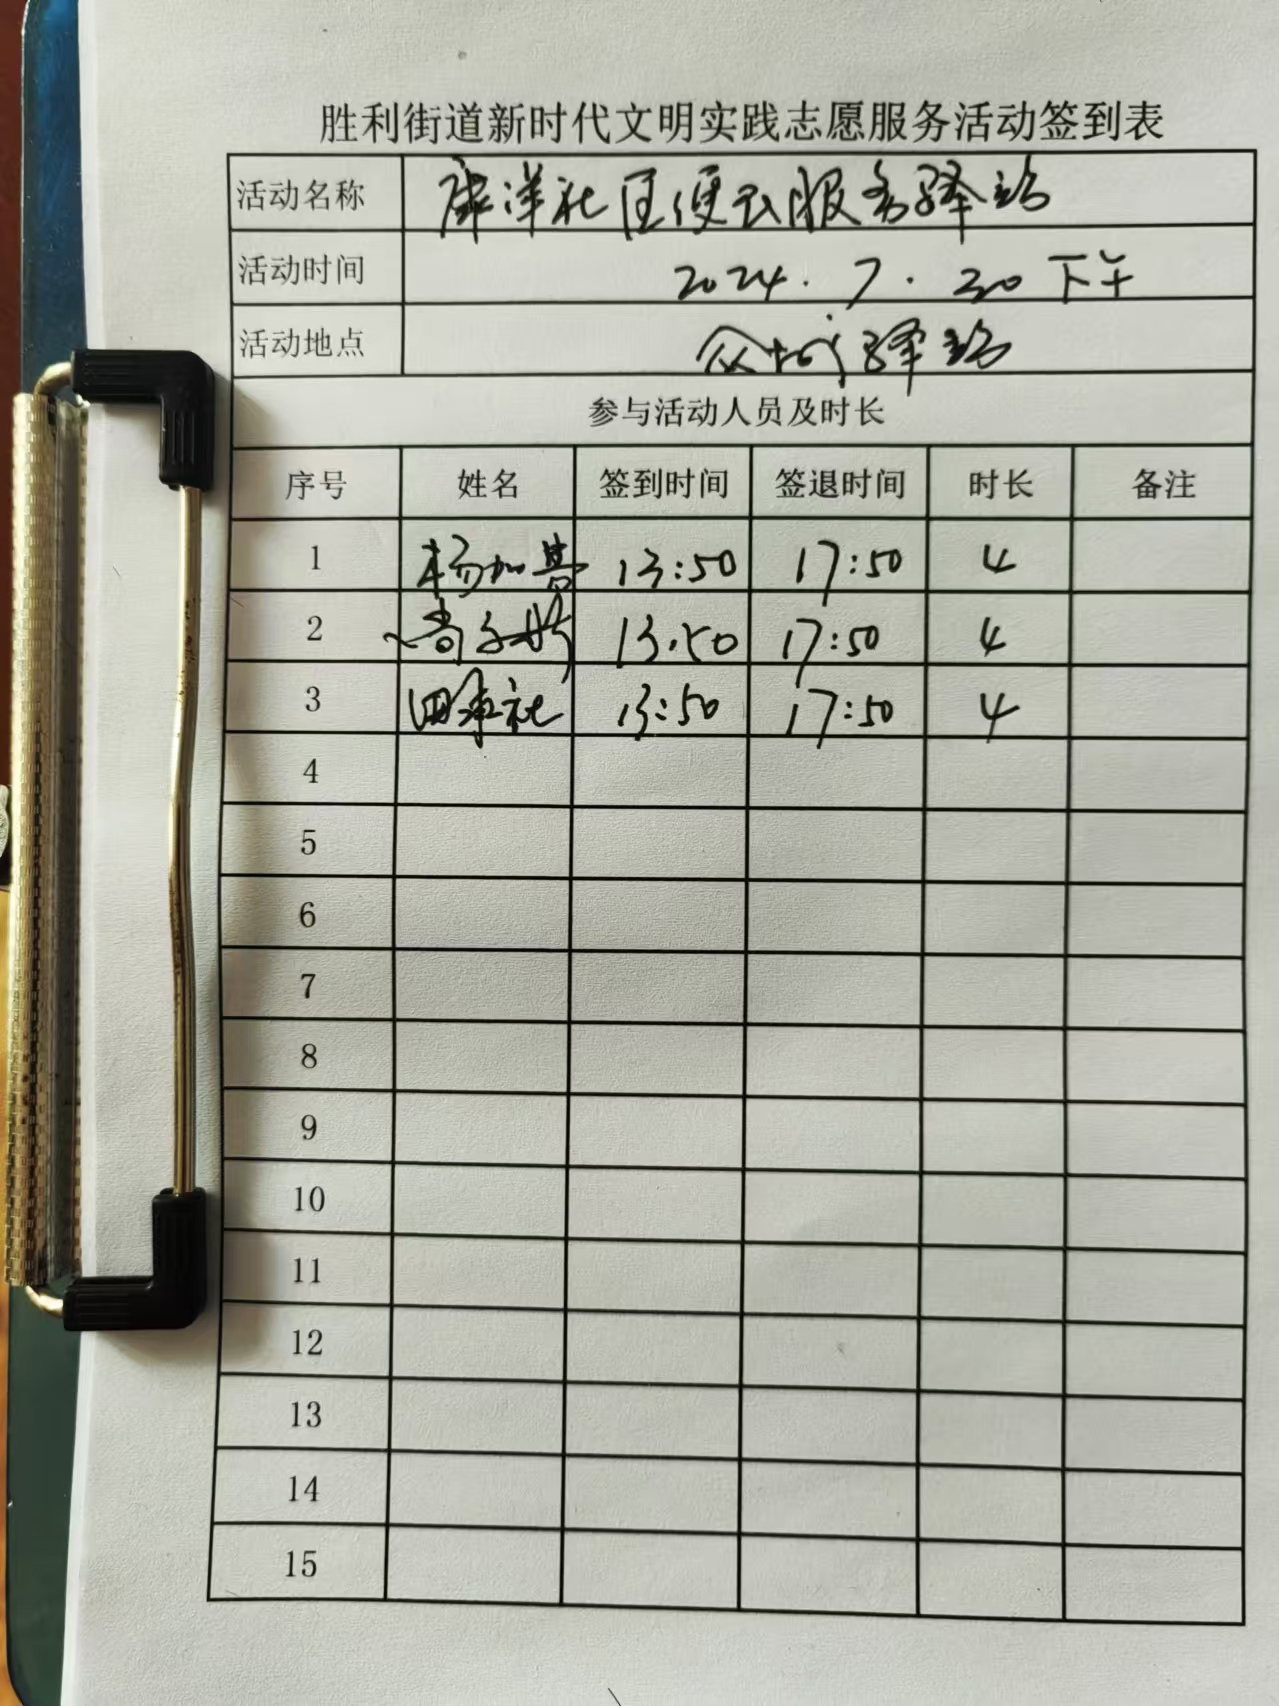 胜利街道新时代文明实践志愿服务活动签到表
活动名称 康洋社区便民服务驿站
活动时间 2024.7.30 下午
活动地点 众城驿站
参与活动人员及时长
序号 姓名 签到时间 签退时间 时长 备注
1 杨加 13:50 17:50 4
2 13:50 17:50 4
3 田 社 13:50 17:50 4
4
5
6
7
8
9
10
11
12
13
14
15